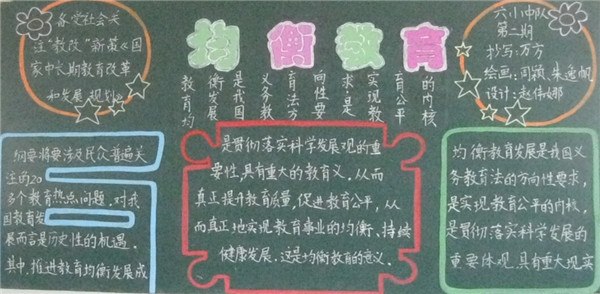 备受社会关
注"教改"新策《国
家中长期教育改革
和发展 规划》
均衡教育
六小中队
第二期
抄写:万方
绘画:周颖、朱逸帆
设计:赵伟娜
教育均
衡发展
是我国
义务教
育法方
向性要
求,是
实现教
育公平
的内核
纲要将要涉及民众普遍关
注的20
多个教育热点问题.对我
国教育发
展而言是历史性的机遇.
其中,推进教育均衡发展成
是贯彻落实科学发展观的重
要性,具有重大的教育义,从而
真正提升教育质量,促进教育公平,从
而真正地实现教育事业的均衡、持续
健康发展.这是均衡教育的意义.
均衡教育发展是我国义
务教育法的方向性要求,
是实现教育公平的内核,
是贯彻落实科学发展的
重要体现.具有重大现实